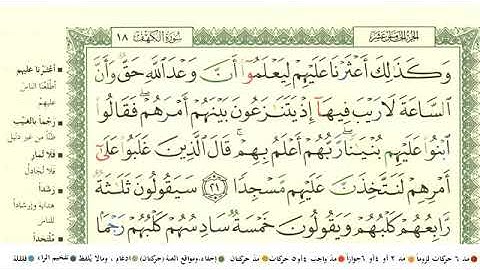 الجزء الخامس عشر
سورة الكهف ١٨
وَكَذَٰلِكَ أَعْثَرْنَا عَلَيْهِمْ لِيَعْلَمُوا أَنَّ وَعْدَ اللَّهِ حَقٌّ وَأَنَّ
السَّاعَةَ لَا رَيْبَ فِيهَا إِذْ يَتَنَٰزَعُونَ بَيْنَهُمْ أَمْرَهُمْ فَقَالُوا
ابْنُوا عَلَيْهِم بُنْيَٰنًا رَّبُّهُمْ أَعْلَمُ بِهِمْ قَالَ الَّذِينَ غَلَبُوا عَلَىٰ
أَمْرِهِمْ لَنَتَّخِذَنَّ عَلَيْهِم مَّسْجِدًا ٢١ سَيَقُولُونَ ثَلَٰثَةٌ
رَّابِعُهُمْ كَلْبُهُمْ وَيَقُولُونَ خَمْسَةٌ سَادِسُهُمْ كَلْبُهُمْ رَجْمًا
أعثرنا عليهم
أطلعنا الناس
عليهم
رجما بالغيب
ظنا من غير دليل
فلا تمار
فلا تجادل
رشدا
هداية وإرشادا
للناس
ملتحدا
مد ٦ حركات لزوما مد ٢ أو ٤ أو ٦ جوازا
مد واجب ٤ أو ٥ حركات مد حركتان
إخفاء، ومواقع الغنة (حركتان) ادغام، ومالا يلفظ
تفخيم الراء قلقلة